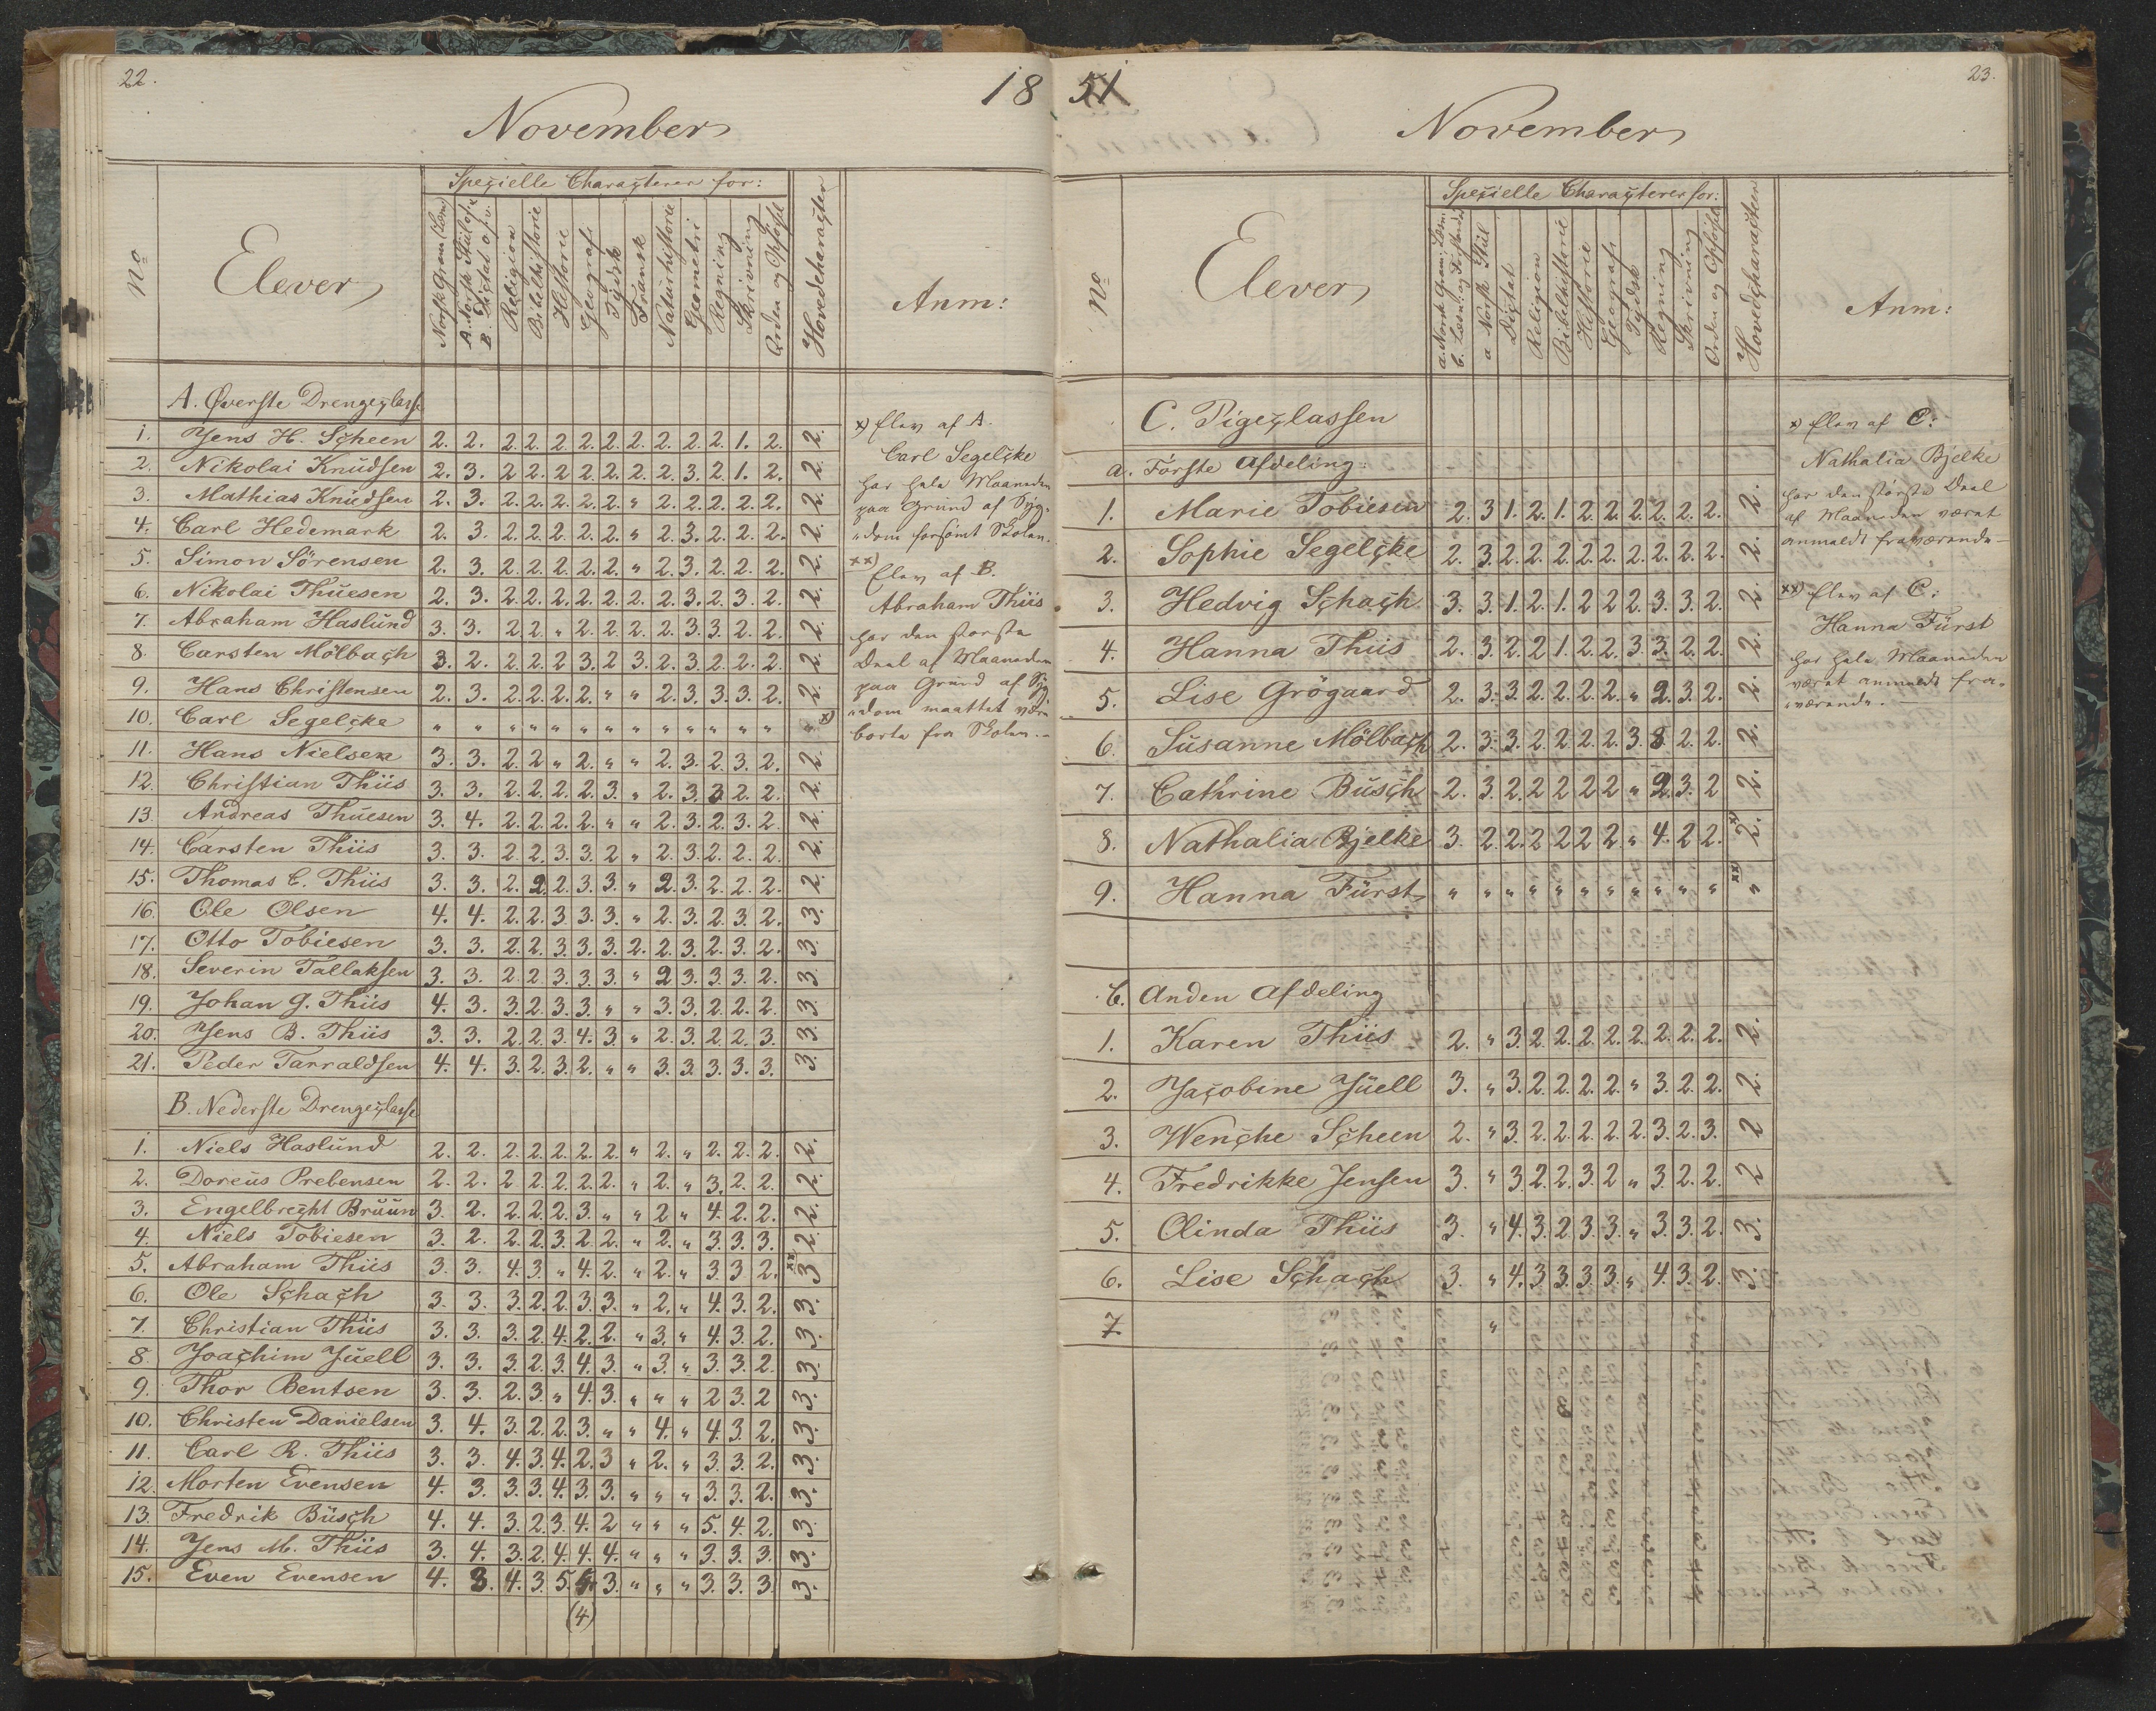 22.
18
November
Speçielle Charaçterer for:
No
Elever
Norsk Gram (Læsn)
A. Norsk Stiil
B. Diçtat
Religion
Bibelhistorie
Historie
Geografi
Tydsk
Fransk
Naturhistorie
Geometri
Regning
Skrivning
Orden og Opførsel
Hovedcharaçter
Anm:
A. Øverste Drengeçlasse
1. Jens H. Sçheen 2. 2. 2. 2. 2. 2. 2. 2. 2. 2. 2. 1. 2. 2.
2. Nikolai Knudsen 2. 3. 2 2. 2. 2. 2. 2. 2. 3. 2. 1. 2. 2.
3. Mathias Knudsen 2. 3. 2. 2. 2. 2. 2. " 2. 2. 2. 2. 2. 2.
4. Carl Hedemark 2. 3. 2. 2. 2. 2. 2. " 2. 3. 2. 2. 2. 2.
5. Simon Sörensen 2. 3. 2. 2. 2. 2. 2. " 2. 3. 2. 2. 2. 2.
6. Nikolai Thuesen 2. 3. 2. 2. 2. 2. 2. 2. 2. 3. 2. 3. 2. 2.
7. Abraham Haslund 3. 3. 2. 2. " 2. 2. 2. 2. 3. 3. 2. 2. 2.
8. Carsten Mölbaçh 3. 2. 2. 2. 2 3. 2 3. 2. 3. 2. 2. 2. 2.
9. Hans Christensen 2. 3. 2. 2. 2. 2. " " 2. 3. 3. 3. 2. 2.
10. Carl Segelçke " " " " " " " " " " " " " " x)
11. Hans Nielsen 3. 3. 2. 2. " 2. " " 2. 3. 2. 3. 2. 2.
12. Christian Thiis 3. 3. 2. 2. 2. 2. 3. " 2. 3. 3 2. 2. 2.
13. Andreas Thuesen 3. 4. 2. 2. 2. 2. " " 2. 3. 2. 3. 2. 2.
14. Carsten Thiis 3. 3. 2. 2. 3. 3. 2 " 2. 3. 2. 2. 2. 2.
15. Thomas C. Thiis 3. 3. 2. 2. 2. 3. 3. " 2. 3. 2. 2. 2. 2.
16. Ole Olsen 4. 4. 2. 2. 3. 3. 3. " 2. 3. 2. 3. 2. 3.
17. Otto Tobiesen 3. 3. 2. 2. 3. 3. 3. 2. 2. 3. 2. 3. 2. 3.
18. Severin Tallaksen 3. 3. 2. 2. 3. 3. 3. " 2 3. 3. 3. 2. 3.
19. Johan G. Thiis 4. 3. 3. 2. 3. 3. " " 3. 3. 2. 2. 2. 3.
20. Jens B. Thiis 3. 3. 2. 2. 3. 4. 3. " 2. 3. 2. 2. 3. 3.
21. Peder Tarraldsen 4. 4. 3. 2. 3. 2. " " 3. 3. 3. 3. 3. 3.
B. Nederste Drengeçlasse
1. Niels Haslund 2. 2. 2. 2. 2. 2. 2. " 2. " 2. 2. 2. 2.
2. Doreus Prebensen 2. 2. 2. 2. 2. 2. 2. " 2. " 3. 2. 2. 2.
3. Engelbreçht Brüün 3. 2. 2. 2. 2. 3. " " 2 " 4. 2. 2. 2.
4. Niels Tobiesen 3. 2. 2. 2. 3. 2. 2. " 2. " 3. 3. 3. 2.
5. Abraham Thiis 3. 3. 4. 3. " 4. 2. " 2. " 3. 3 2. 3 xx
6. Ole Sçhaçh 3. 3. 3. 2. 2. 3. 3. " 2. " 4. 3. 2. 3.
7. Christian Thiis 3. 3. 3. 2. 4. 2. 2. " 3. " 4. 3. 2. 3.
8. Joaçhim Juell 3. 3. 3. 2. 3. 4. 3. " 3. " 3. 3. 2. 3.
9. Thor Bentsen 3. 3. 2. 3. " 4. 3. " " " 2 3. 2 3.
10. Christen Danielsen 3. 4. 3. 2. 2. 3. " " 4. " 4. 3. 2. 3.
11. Carl R. Thiis 3. 3. 4. 3. 4. 2. 3 " 2. " 3. 3. 2. 3.
12. Morten Evensen 4. 3. 3. 3. 4. 3. 3. " " " 3. 3. 2. 3.
13. Fredrik Büsçh 4. 4. 3. 2. 3. 4. 2 " " " 5. 4. 2. 3.
14. Jens M. Thiis 3. 4. 3. 2. 4. 4. 4. " " " 3. 3. 3. 3.
15. Even Evensen 4. 3. 4. 3. 5. 3. " " " 3. 3. 3. 3.
(4)
x) Elev af A.
Carl Segelçke
har hele Maaneden
paa Grund af Syg-
"dom forsömt Skolen.
xx)
Elev af B.
Abraham Thiis
har den storste
Deel af Maaneden
paa Grund af Syg
"dom maattet være
borte fra Skolen.-
51
23.
November
Speçielle Charaçterer for:
No
Elever
a. Norsk Gram; Læsn.
b. Læsn. og Forstand
a Norsk Stiil
Diçtat
Religion
Bibelhistorie
Historie
Geografi
Tydsk
Regning
Skrivning
Orden og Opførsel
Hovedçharaçteer
Anm:
C. Pigeçlassen
a. Første Afdeling:
1. Marie Tobiesen 2. 3 1. 2. 1. 2. 2. 2. 2. 2. 2. 2.
2. Sophie Segelçke 2. 3. 2. 2. 2. 2. 2. 2. 2. 2. 2. 2.
3. Hedvig Sçhaçh 3. 3. 1. 2. 1. 2 2 2. 3. 3. 2. 2.
4. Hanna Thiis 2. 3. 2. 2 1. 2. 2. 3. 3. 2. 2. 2.
5. Lise Grögaard 2. 3. 3. 2. 2. 2. 2. " 2. 3. 2. 2.
6. Susanne Mölbaçh 2. 3. 3. 2. 2. 2. 2. 3. 3 2. 2. 2.
7. Cathrine Busçh 2. 3. 2. 2 2 2 2 " 2. 3. 2 2.
8. Nathalia Bjelke 3. 2. 2. 2 2 2 2. " 4. 2 2. 2. x)
9. Hanna Fürst " " " " " " " " " " " " xx
b. Anden Afdeling
1. Karen Thiis 2. " 3. 2. 2. 2. 2. 2. 2. 2. 2. 2.
2. Jaçobine Jüell 3. " 3. 2. 2. 2. 2. " 3. 2. 2. 2.
3. Wençhe Sçheen 2. " 3. 2. 2. 2. 2. 2. 3. 2. 3. 2
4. Fredrikke Jensen 3. " 3. 2. 2. 3. 2 " 3. 2. 2. 2
5. Olinda Thiis 3. " 4. 3. 2. 3. 3. " 3. 3. 2. 3.
6. Lise Sçhaçh 3. " 4. 3 3. 3. 3. " 4. 3. 2. 3.
7 "
x) Elev af C:
Nathalia Bjelke
har den störste Deel
af Maaneden været
anmeldt fraværende-
xx) Elev af C:
Hanna Fürst
har hele Maaneden
været anmeldt fra-
"værende.